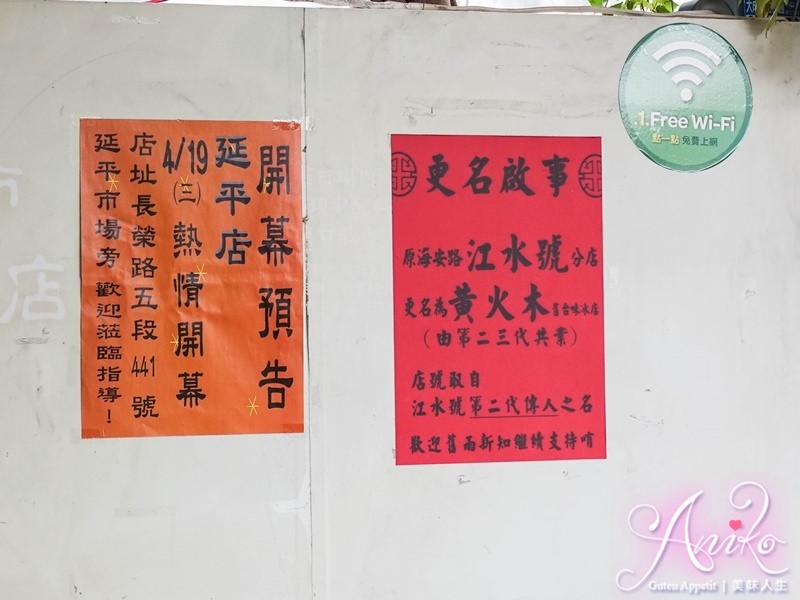 開幕預告
延平店
4/19(三)熱情開幕
店址長榮路五段441號
延平市場旁 歡迎蒞臨指導！
更名啟事
原海安路江水號分店
更名為黃火木舊台味冰店
(由第二三代共業)
店號取自
江水號第二代傳人之名
歡迎舊雨新知繼續支持唷
.1.Free Wi-Fi
點一點 免費上網
Aniko
Guten Appetit | 美味人生